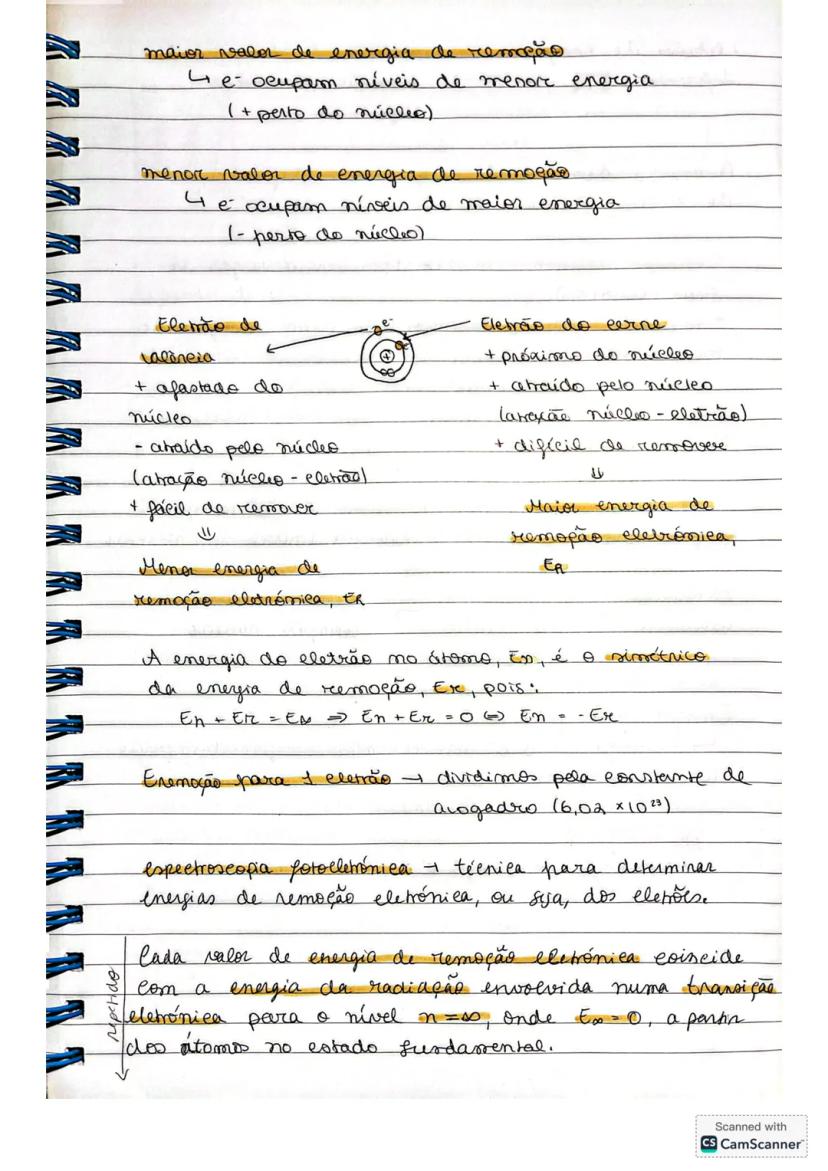 maior valor de energia de remoção
↳ e⁻ ocupam níveis de menor energia
(+ perto do núcleo)
menor valor de energia de remoção
↳ e⁻ ocupam níveis de maior energia
(- perto do núcleo)
Eletrão de
valência
+ afastado do
núcleo
- atraído pelo núcleo
(atração núcleo - eletrão)
+ fácil de remover
⇓
Menor energia de
remoção eletrónica, ER
e⁻
+
∞
Eletrão do cerne
+ próximo do núcleo
+ atraído pelo núcleo
(atração núcleo - eletrão)
+ difícil de remover
⇓
Maior energia de
remoção eletrónica,
ER
A energia do eletrão no átomo, En, é o simétrico
da energia de remoção, Er, pois:
En + Er = E∞ ⇒ En + Er = 0 ⇔ En = - Er
Eremoção para 1 eletrão → dividimos pela constante de
avogadro (6,02 × 10²³)
espectroscopia fotoeletrónica → técnica para determinar
energias de remoção eletrónica, ou seja, dos eletrões.
repetido
Cada valor de energia de remoção eletrónica coincide
com a energia da radiação envolvida numa transição
eletrónica para o nível n = ∞, onde E∞ = 0, a partir
dos átomos no estado fundamental.
Scanned with
CS CamScanner